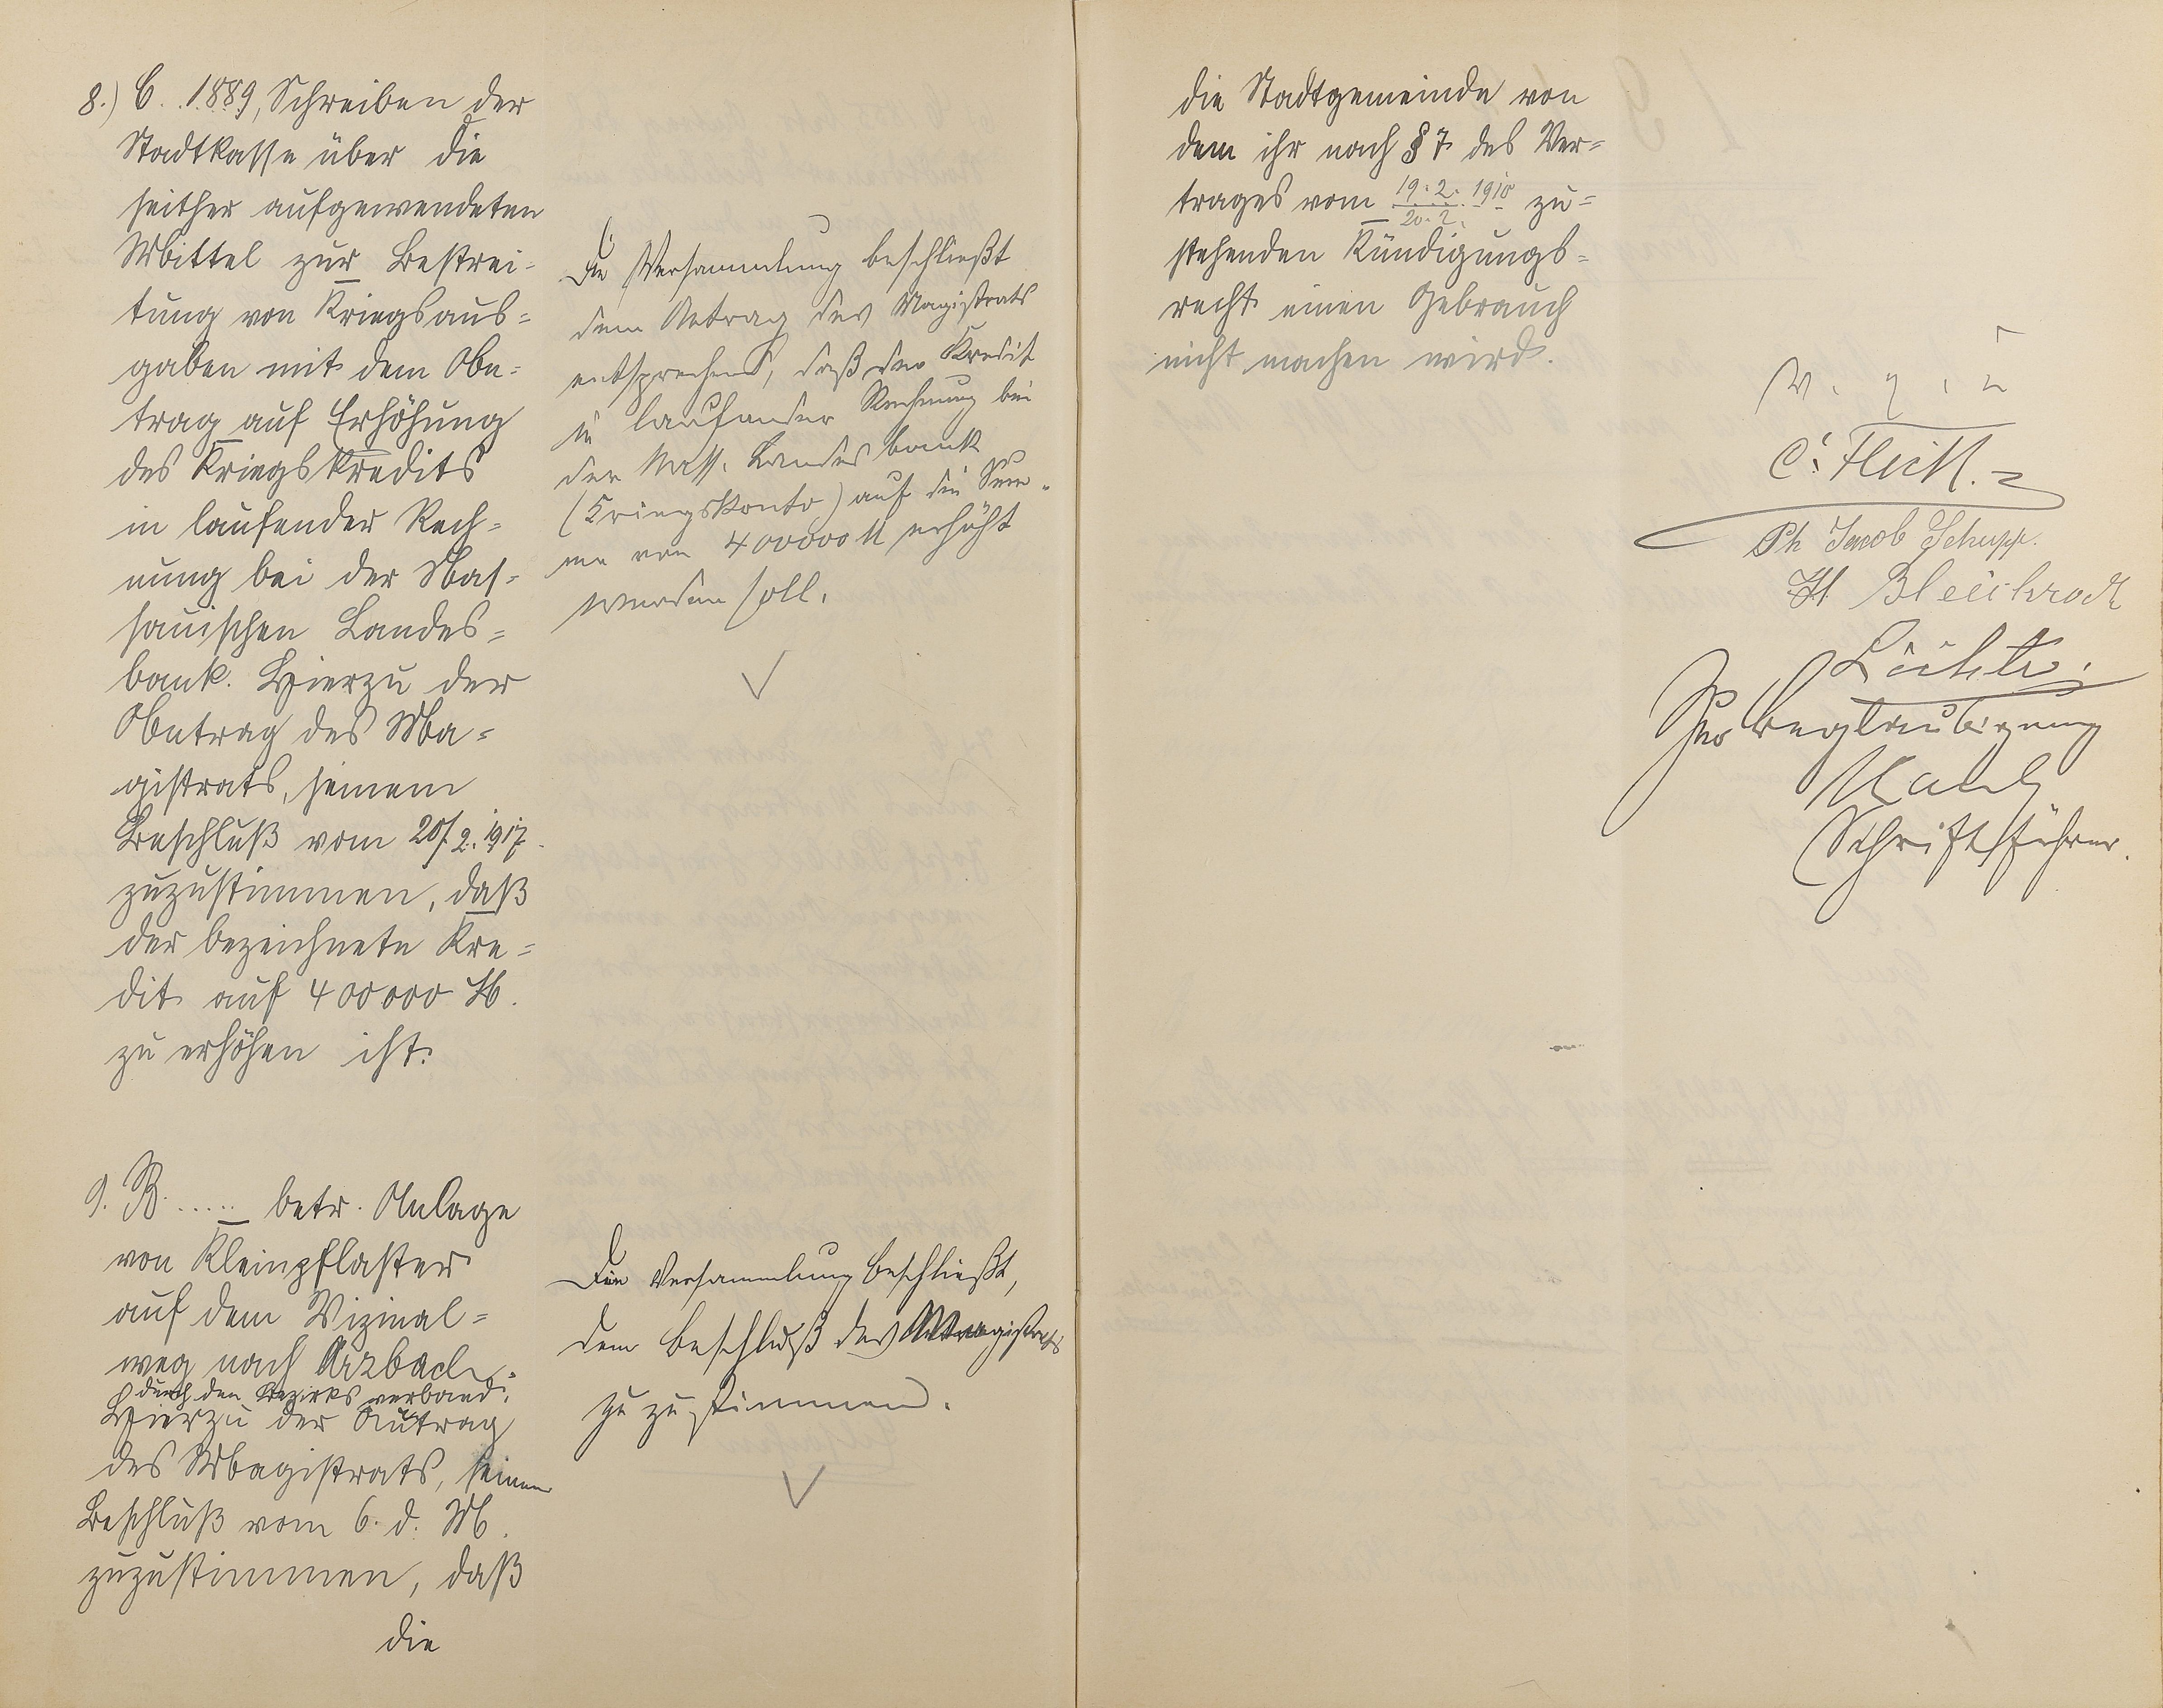 8.) C. 1889, Schreiben der
Stadtkasse über die
seither aufgewendeten
Mittel zur Bestrei-
tung von Kriegsaus-
gaben mit dem An-
trag auf Erhöhung
des Kriegskredits
in laufender Rech-
nung bei der Nas-
sauischen Landes-
bank. Hierzu der
Antrag des Ma-
gistrats, seinem
Beschluß vom 20/2. 1917
zuzustimmen, daß
der bezeichnete Kre-
dit auf 400000 M.
zu erhöhen ist.
Die Versammlung beschließt
dem Antrag des Magistrats
entsprechend, daß der Kredit
in laufender Rechnung bei
der Nass. Landesbank
(Kriegskonto) auf die Sum-
me von 400000 M erhöht
werden soll.
9. B. ..... betr. Anlage
von Kleinpflaster
auf dem Vizinal-
weg nach Arzbach
durch den Bezirksverband.
Hierzu der Antrag
des Magistrats, seinem
Beschluß vom 6. d. M.
zuzustimmen, daß
die
Die Versammlung beschließt,
dem Beschluß des Magistrats
zuzustimmen.
die Stadtgemeinde von
dem ihr nach § 7 des Ver-
trages vom 19.2. 1910 zu-
20.2.
stehenden Kündigungs-
recht einen Gebrauch
nicht machen wird.
v. g. u.
C. Flick.
Ph Jacob Schupp.
H. Bleichrodt
Zur Beglaubigung
Schriftführer.